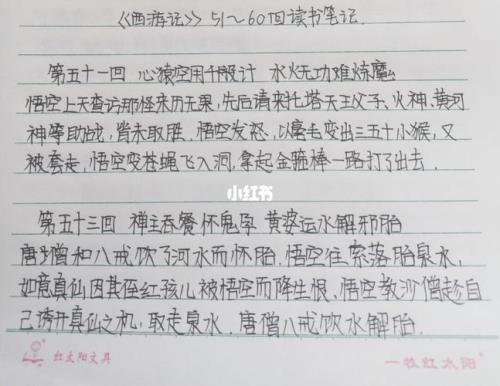 《西游记》51～60回读书笔记.
第五十一回 心猿空用千般计 水火无功难炼魔
悟空上天查访那怪来历无果,先后请来托塔天王父子、火神、黄河
神等助战,皆未取胜.悟空发怒,以毫毛变出三五十小猴,又
被套走,悟空变苍蝇飞入洞,拿起金箍棒一路打了出去.
小红书
第五十三回 禅主吞餐怀鬼孕 黄婆运水解邪胎
唐僧和八戒饮了河水而怀胎.悟空往索落胎泉水,
如意真仙因其侄红孩儿被悟空而降生恨.悟空教沙僧趁自
己诱开真仙之机,取走泉水.唐僧八戒饮水解胎.
红太阳文具
一牧红太阳